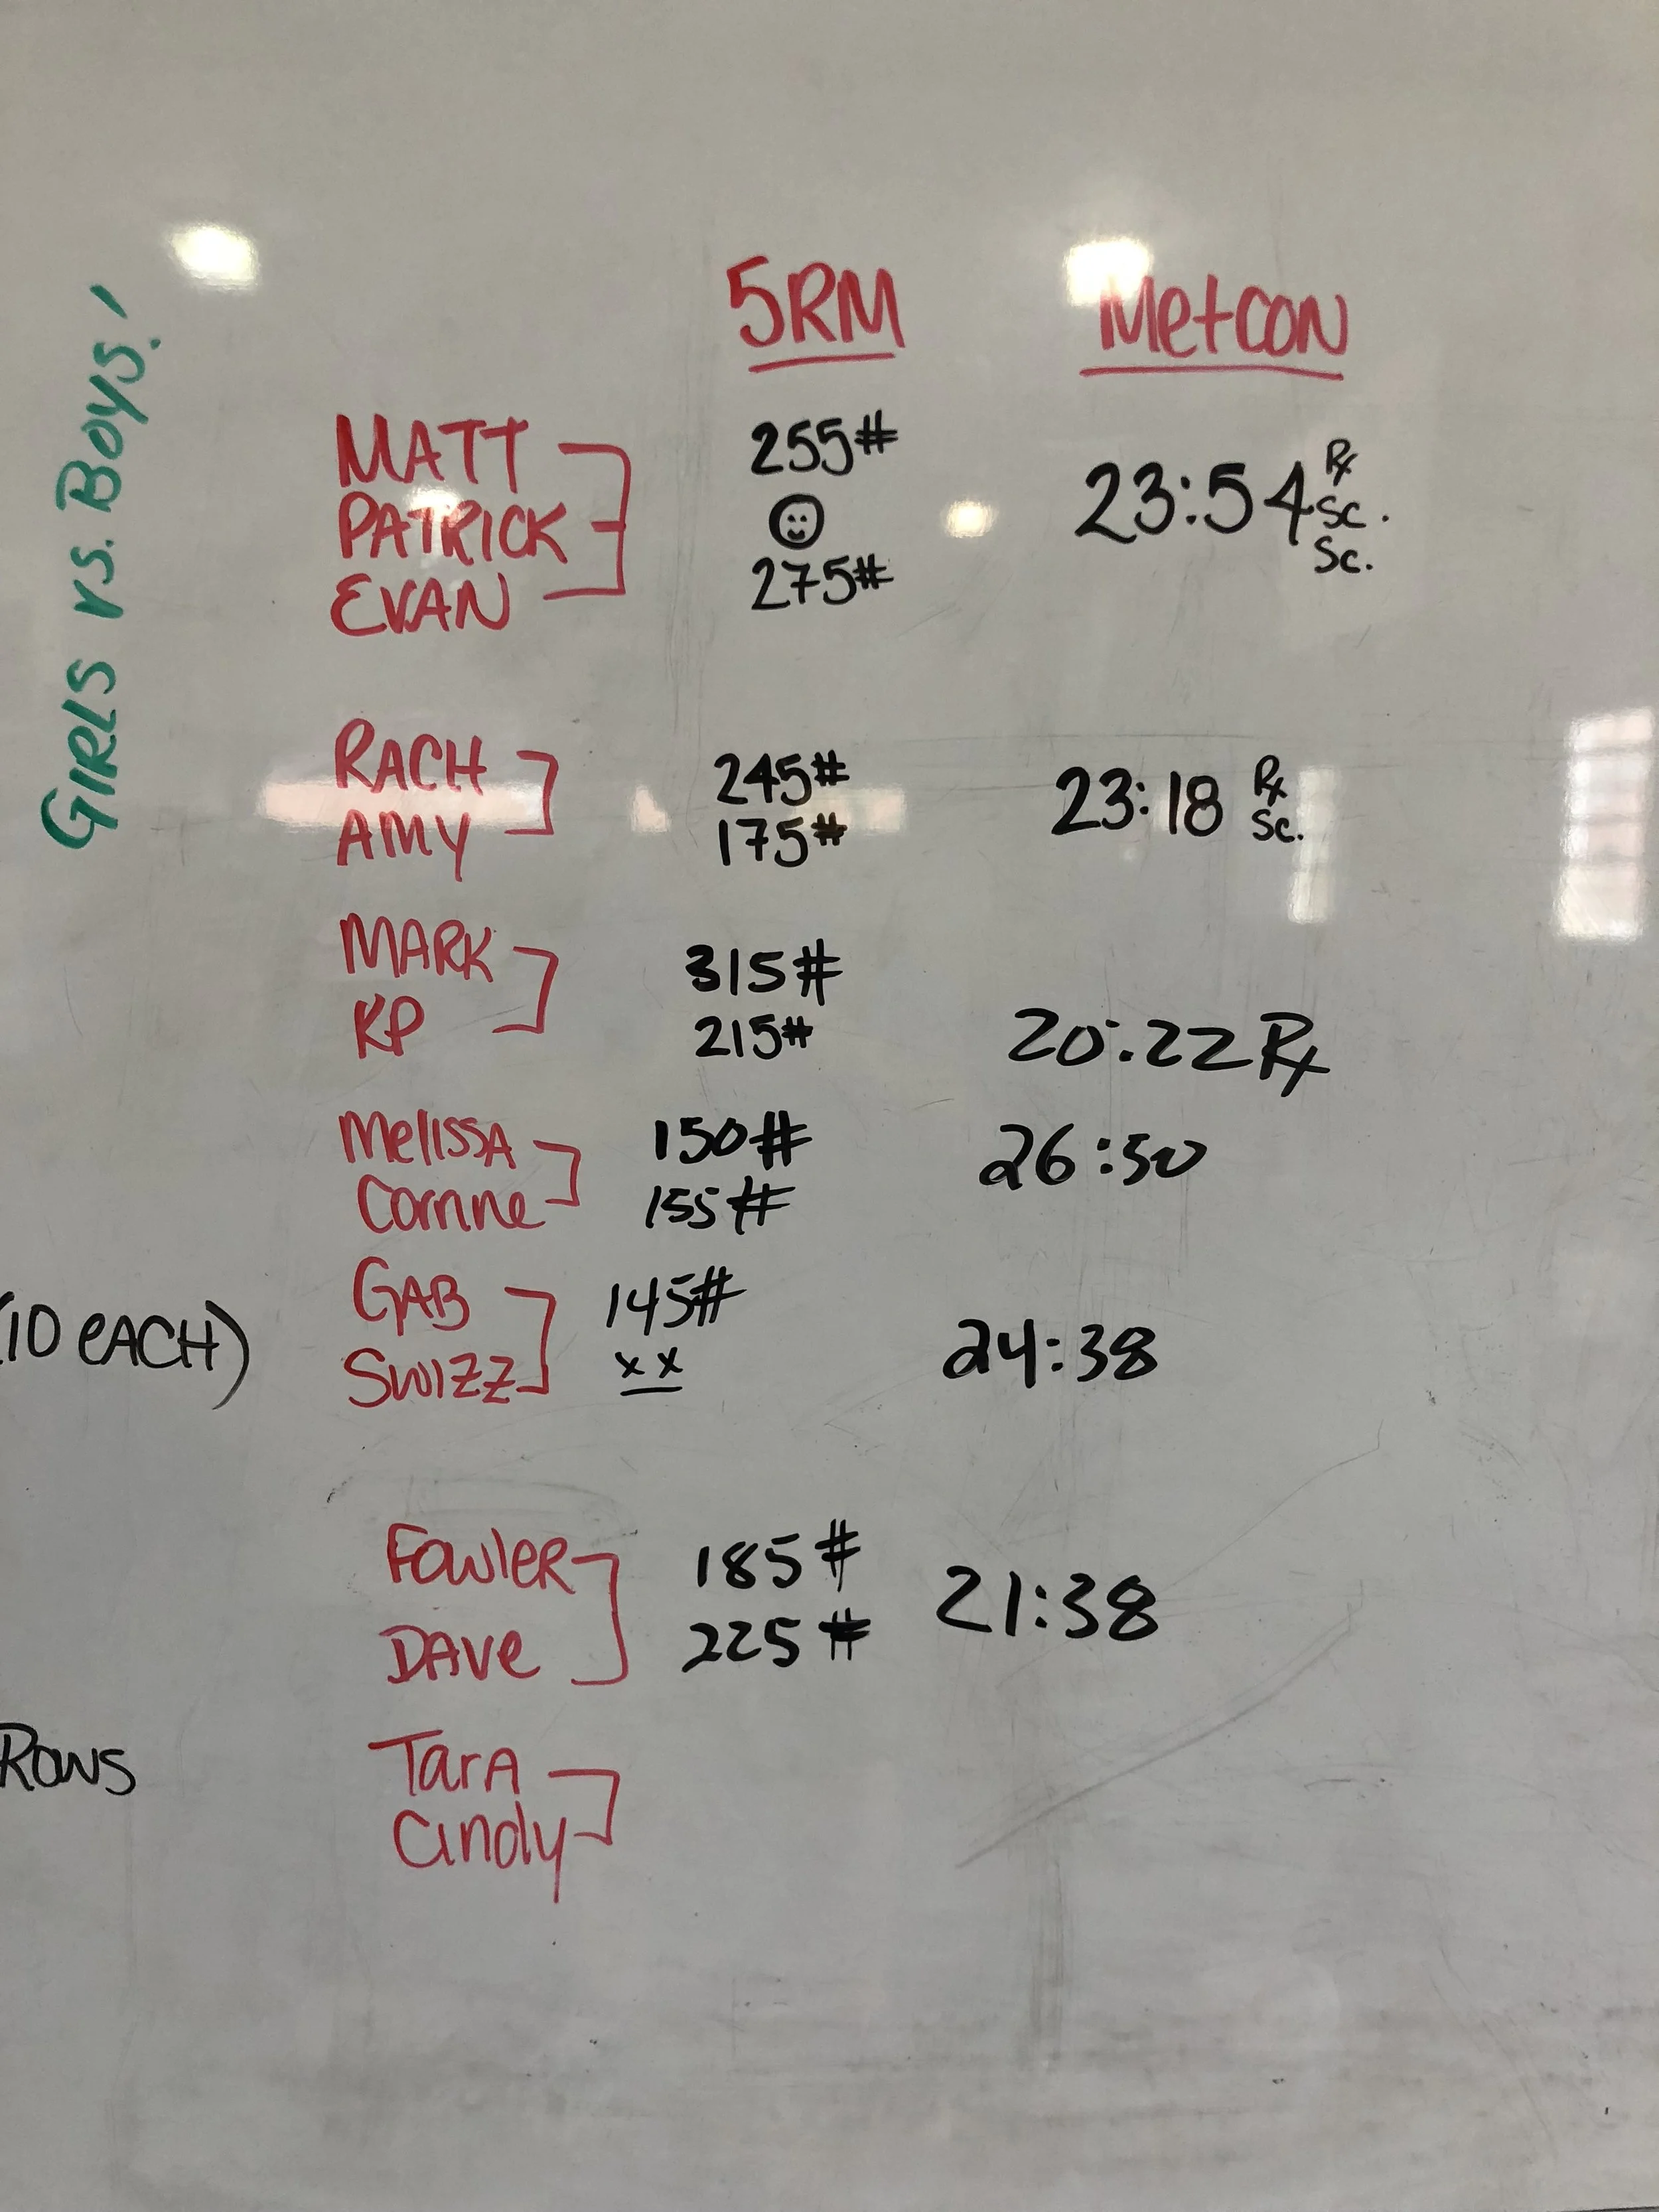 GIRLS vs. BOYS!
5RM Metcon
MATT 255#
PATRICK 23:54 Rx Sc. Sc.
EVAN 275#
RACH 245#
23:18 Rx Sc.
AMY 175#
MARK 315#
KP 215# 20:22 Rx
Melissa 150# 26:50
Corinne 155#
GAB 145#
(10 eACH) 24:38
SWIZZ xx
Fowler 185#
21:38
DAve 225#
ROWS
TarA
Cindy